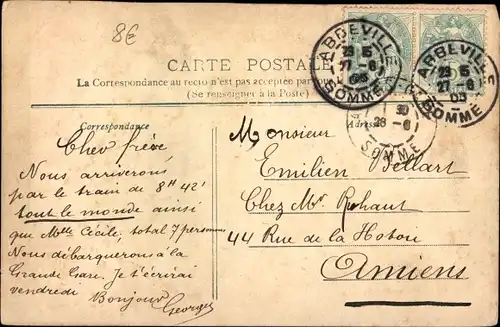 8€
CARTE POSTALE
La Correspondance au recto n'est pas acceptée par
(Se renseigner à la Poste)
ABBEVILLE
23 5
27-6
05
SOMME
ABBEVILLE
23 5
27-6
05
SOMME
28-6
SOMME
Adresse
Correspondance
Cher frère
Nous arriverons
par le train de 8H 42'
tout le monde ainsi
que Melle Cécile, total 7 personnes
Nous débarquerons à la
Grande Gare. Je t'écrirai
vendredi Bonjour
Georges
Monsieur
Emilien Bellart
Chez Mr. Rohaut
44 Rue de la Hotoie
Amiens